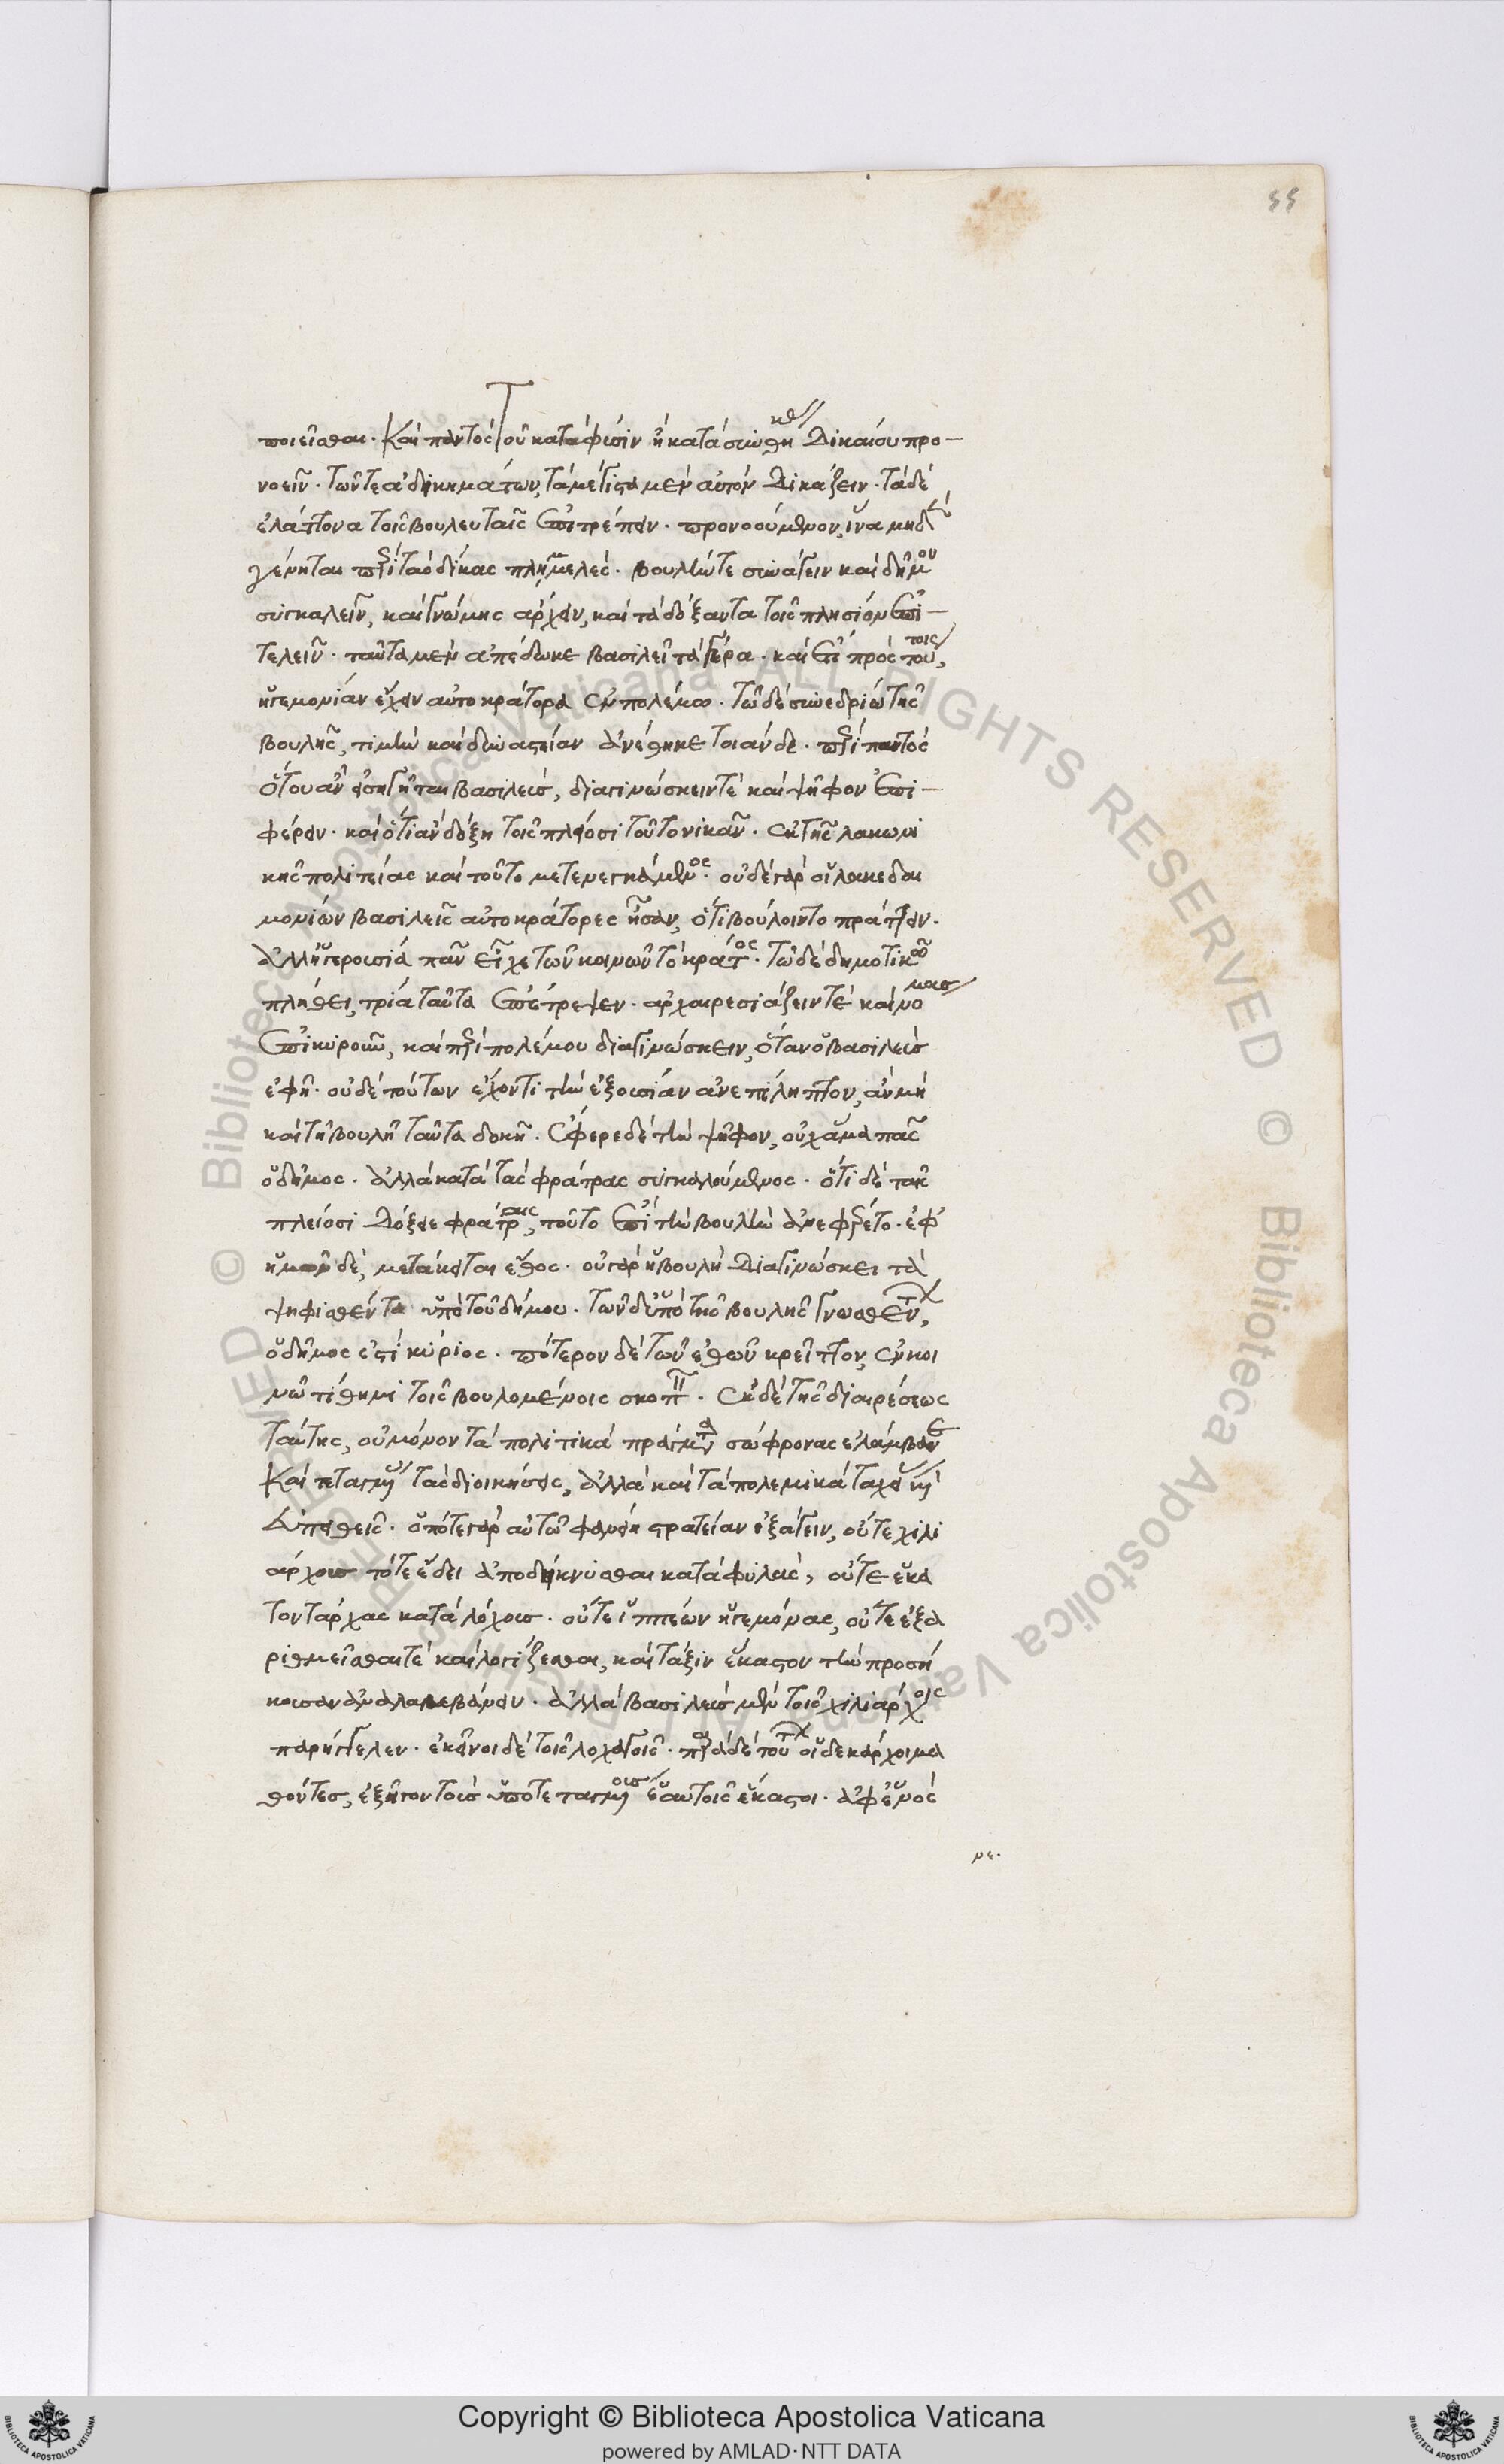 55
ποιεῖσθαι. καὶ παντὸς τοῦ κατὰ φύσιν ἢ κατὰ συνθήκας δικαίου προ-
νοεῖν. τῶν τε ἀδικημάτων, τὰ μέγιστα μὲν αὐτὸν δικάζειν. τὰ δὲ
ἐλάττονα τοῖς βουλευταῖς ἐπιτρέπειν. προνοούμενον, ἵνα μηδὲν
γένηται περὶ τὰς δίκας πλημμελές. βουλήν τε συνάγειν καὶ δῆμον
συγκαλεῖν, καὶ γνώμης ἄρχειν, καὶ τὰ δόξαντα τοῖς πλείοσιν ἐπι-
τελεῖν. ταῦτα μὲν ἀπέδωκε βασιλεῖ τὰ γέρα. καὶ ἔτι πρὸς τούτοις,
ἡγεμονίαν ἔχειν αὐτοκράτορα ἐν πολέμῳ. τῷ δὲ συνεδρίῳ τῆς
βουλῆς, τιμὴν καὶ δυναστείαν ἀνέθηκε τοιάνδε. περὶ παντὸς
ὅτου ἂν εἰσηγῆται βασιλεύς, διαγινώσκειν τὲ καὶ ψῆφον ἐπι-
φέρειν. καὶ ὅτι ἂν δόξῃ τοῖς πλείοσι τοῦτο νικᾶν. ἐκ τῆς λακωνι
κῆς πολιτείας καὶ τοῦτο μετενεγκάμενος. οὐδὲ γὰρ οἱ λακεδαι
μονίων βασιλεῖς αὐτοκράτορες ἦσαν, ὅτι βούλοιντο πράττειν.
ἀλλ' ἡ γερουσία πᾶν εἶχε τῶν κοινῶν τὸ κράτος. τῷ δὲ δημοτικῷ
πλήθει, τρία ταῦτα ἐπέτρεψεν. ἀρχαιρεσιάζειν τὲ καὶ νόμους
ἐπικυροῦν, καὶ περὶ πολέμου διαγινώσκειν, ὅταν ὁ βασιλεὺς
ἐφῇ. οὐδὲ τούτων ἔχοντι τὴν ἐξουσίαν ἀνεπίληπτον, ἂν μὴ
καὶ τῇ βουλῇ ταῦτα δοκῇ. ἔφερε δὲ τὴν ψῆφον, οὐχ ἅμα πᾶς
ὁ δῆμος. ἀλλὰ κατὰ τὰς φράτρας συγκαλούμενος. ὅτι δὲ ταῖς
πλείοσι δόξειε φράτραις, τοῦτο ἐπὶ τὴν βουλὴν ἀνεφέρετο. ἐφ'
ἡμῶν δὲ, μετάκειται ἔθος. οὐ γὰρ ἡ βουλὴ διαγινώσκει τὰ
ψηφισθέντα ὑπὸ τοῦ δήμου. τῶν δ' ὑπὸ τῆς βουλῆς γνωσθέντων,
ὁ δῆμος ἐστὶ κύριος. πότερον δὲ τῶν ἐθῶν κρεῖττον, ἐν κοι
νῷ τίθημι τοῖς βουλομένοις σκοπεῖν. ἐκ δὲ τῆς διαιρέσεως
ταύτης, οὐ μόνον τὰ πολιτικὰ πράγματα σώφρονας ἐλάμβανε
καὶ τεταγμένας τὰς διοικήσεις, ἀλλὰ καὶ τὰ πολεμικὰ ταχείας καὶ
εὐπειθεῖς. ὁπότε γὰρ αὐτῷ φανείη στρατείαν ἐξάγειν, οὔτε χιλι
άρχους τότε ἔδει ἀποδείκνυσθαι κατὰ φυλὰς, οὔτε ἑκα
τοντάρχας κατὰ λόχους. οὔτε ἱππέων ἡγεμόνας, οὔτε ἐξα
ριθμεῖσθαι τὲ καὶ λογίζεσθαι, καὶ τάξιν ἕκαστον τὴν προσή
κουσαν ἀναλαμβάνειν. ἀλλὰ βασιλεὺς μὲν τοῖς χιλιάρχοις
παρήγγελεν. ἐκεῖνοι δὲ τοῖς λοχαγοῖς. παρὰ δὲ τούτων οἱ δεκάρχοι μα
θόντες, ἐξῆγον τοὺς ὑποτεταγμένους ἑαυτοῖς ἕκαστοι. ἀφ' ἑνὸς
Copyright © Biblioteca Apostolica Vaticana
powered by AMLAD·NTT DATA